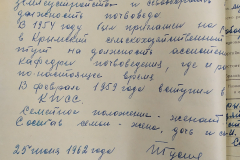 должность почвоведа
В 1957 году был приглашен на р
в Крымский сельскохозяйственный
на должность ассистента
кафедры почвоведения, где и ра
по настоящее время
В феврале 1959 года вступил в
КПСС.
Семейное положение - женат
Состав семьи - жена, дочь и сын
25 июня 1962 года